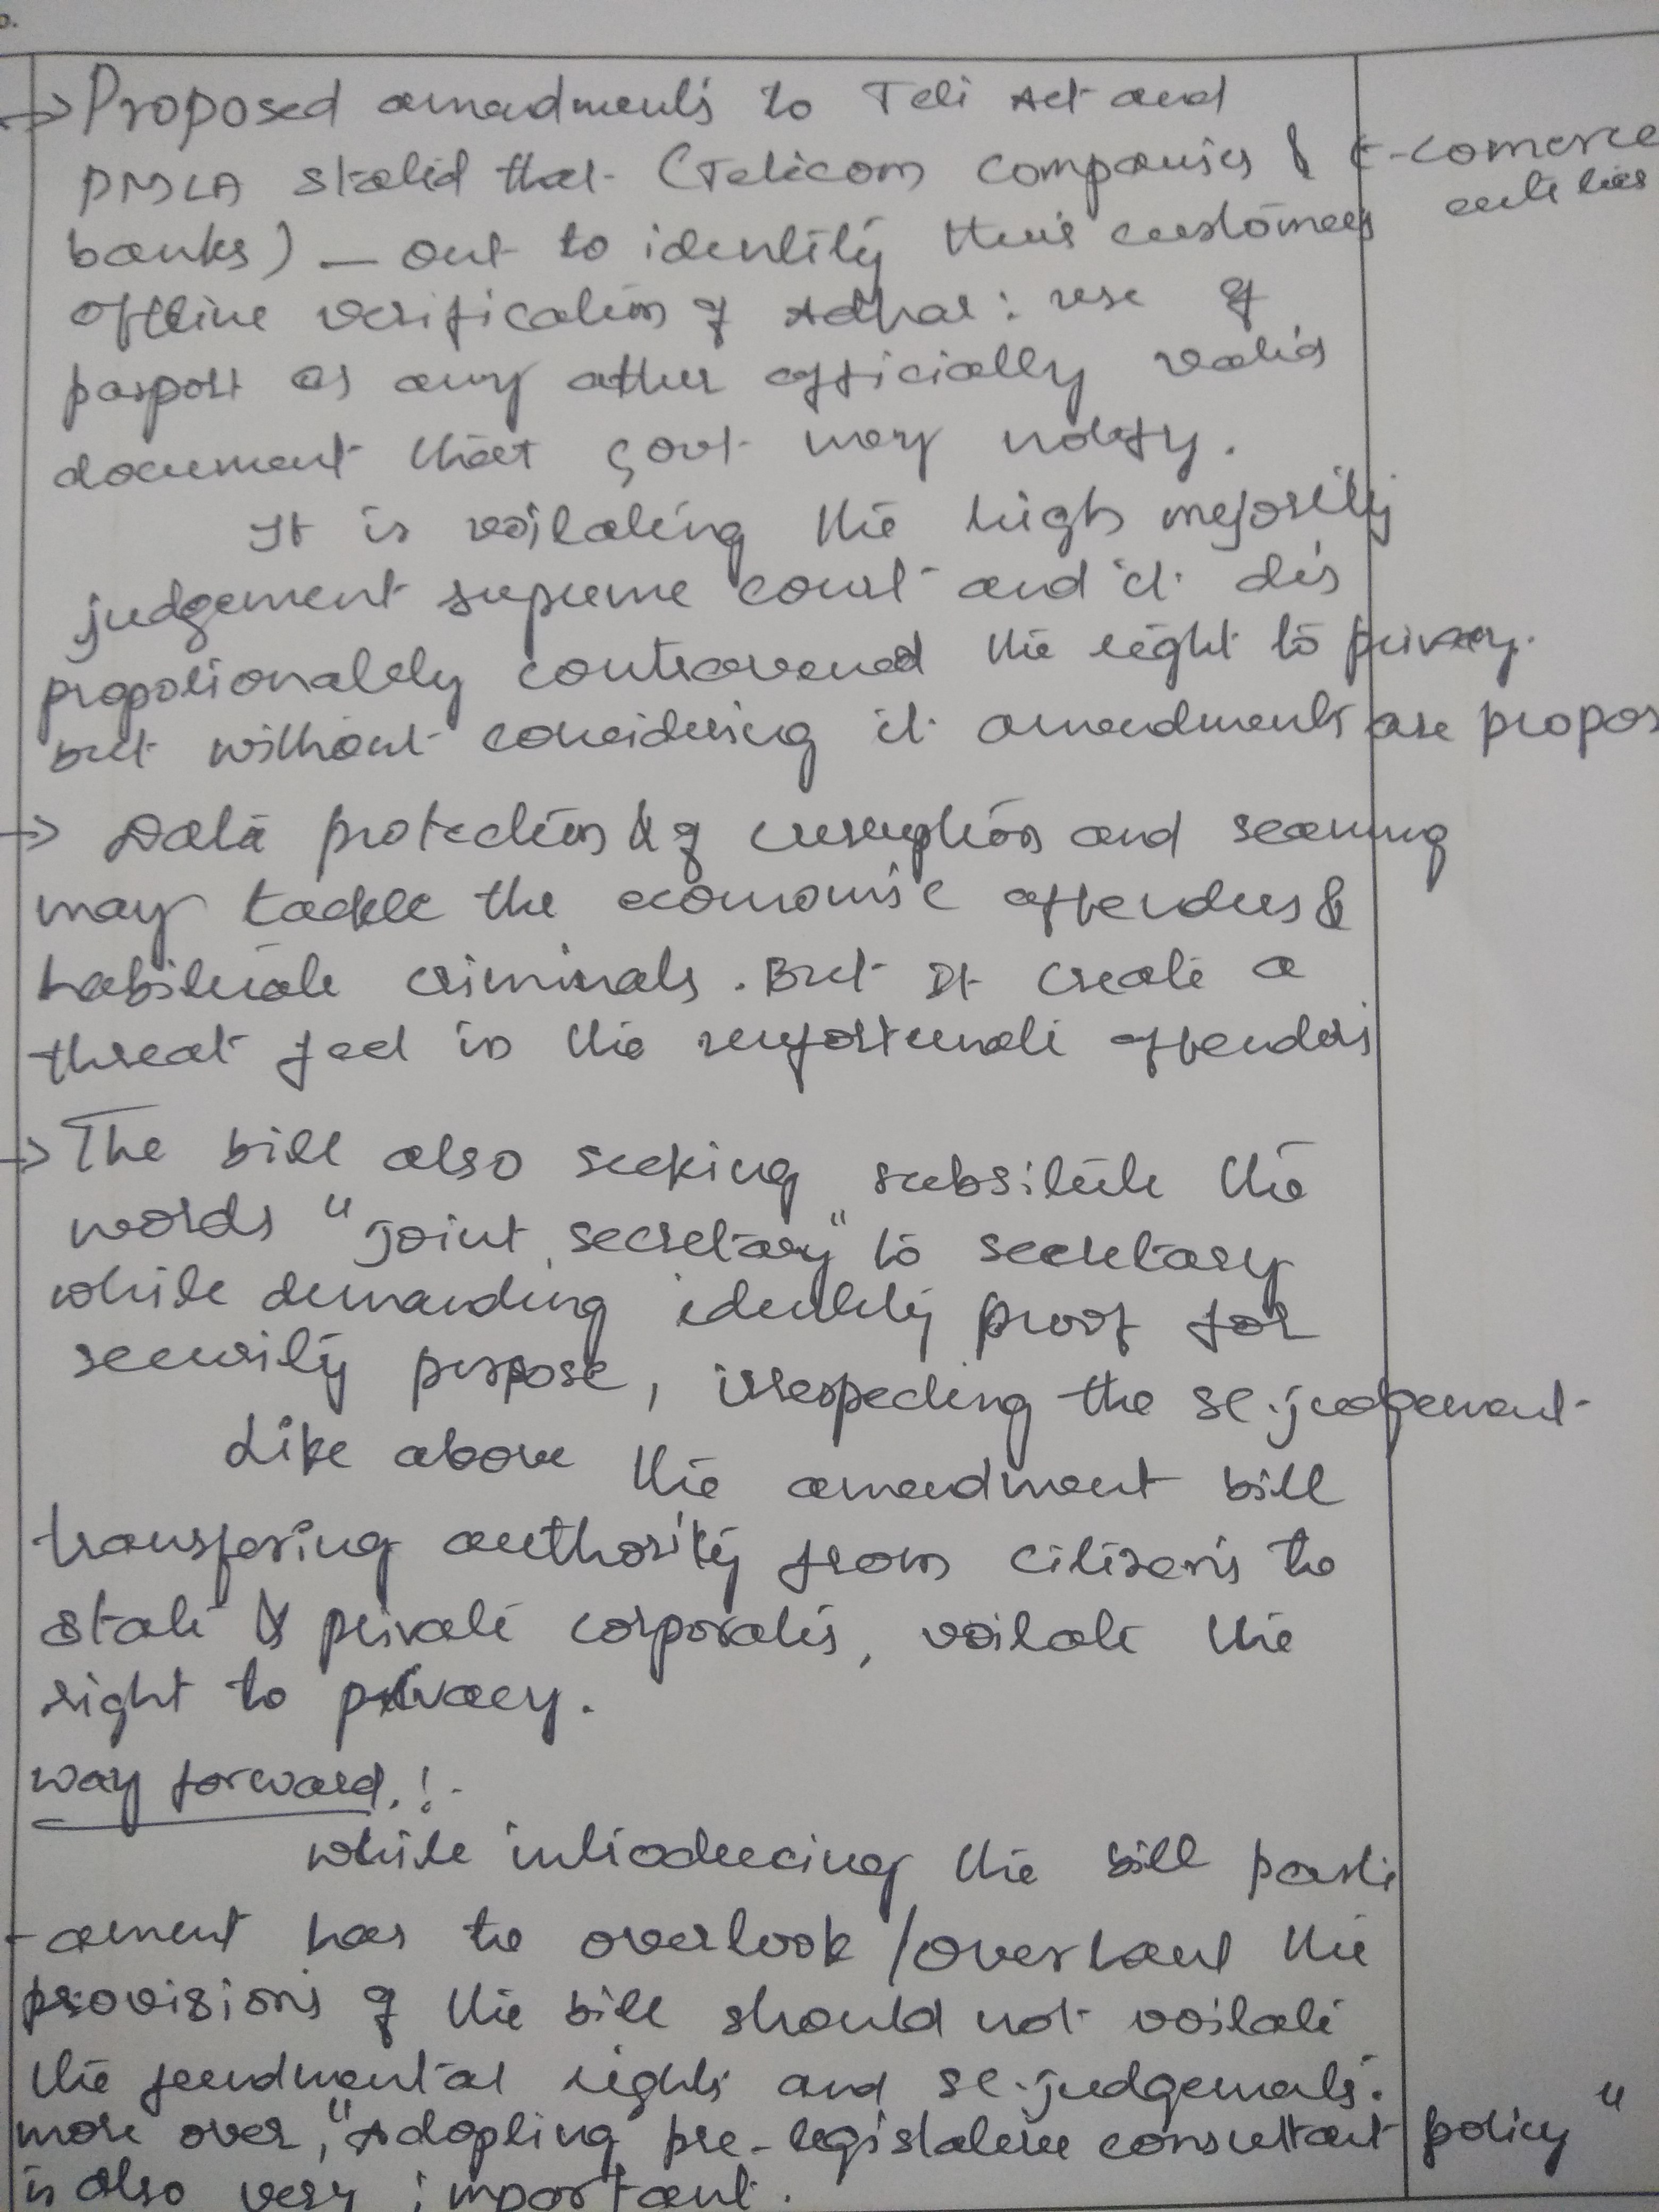 → Proposed amendments to Teli Act and
PMLA stated that (Telecom companies & E-comerce entities
banks) — out to identify their customers
offline verification of Adhar : use of
pasport as any other officially valid
document that Govt may notify.
It is voilating the high majority
judgement supreme court and it dis
propotionablely contravened the right to privacy.
but without considering it amendments are propos
→ Data protection & of and scanning
may tackle the economic offenders &
habituate criminals. But It create a
threat feel in the unfortunate offenders
→ The bill also seeking subsitute the
words "joint secretary" to secretary
while demanding identity proof for
security purpose, irrespecting the SC.judgement
Like above the amendment bill
transfering authority from citizens to
state & private corporates, voilate the
right to privacy.
way forward.!-
while introducing the bill parli
-ament has to overlook /overhaul the
provisions of the bill should not voilate
the fundmental rights and SC.judgements.
more over, "Adopting pre-legislative consultant policy"
is also very important.